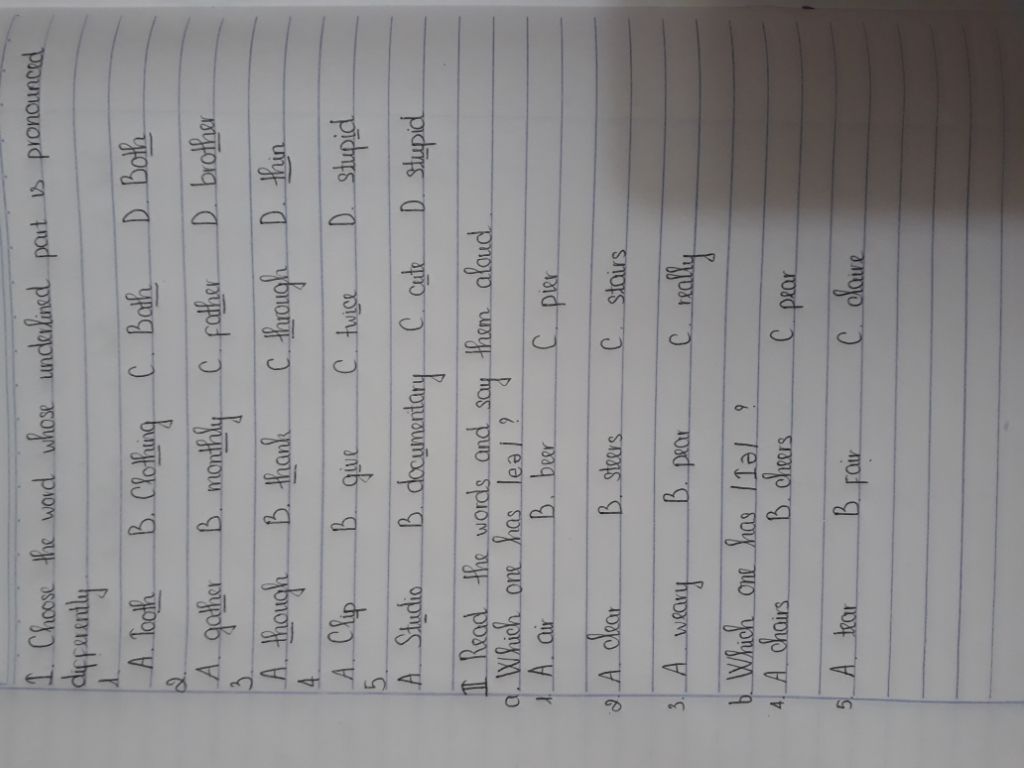 I. Choose the word whose underlined part is pronounced
differently
1.
A. Tooth B. Clothing C. Bath D. Both
2.
A. gather B. monthly C. father D. brother
3.
A. though B. thank C. through D. thin
4
A. Clip B. give C. twice D. stupid
5.
A. Studio B. documentary C. cute D. stupid
II Read the words and say them aloud
a. Which one has /eə/ ?
1. A. air B. beer C. pier
2 A. clear B. steers C. stairs
3. A. weary B. pear C. really
b. Which one has /Iə/ ?
4. A. chairs B. cheers C. pear
5. A. tear B. fair C. claire